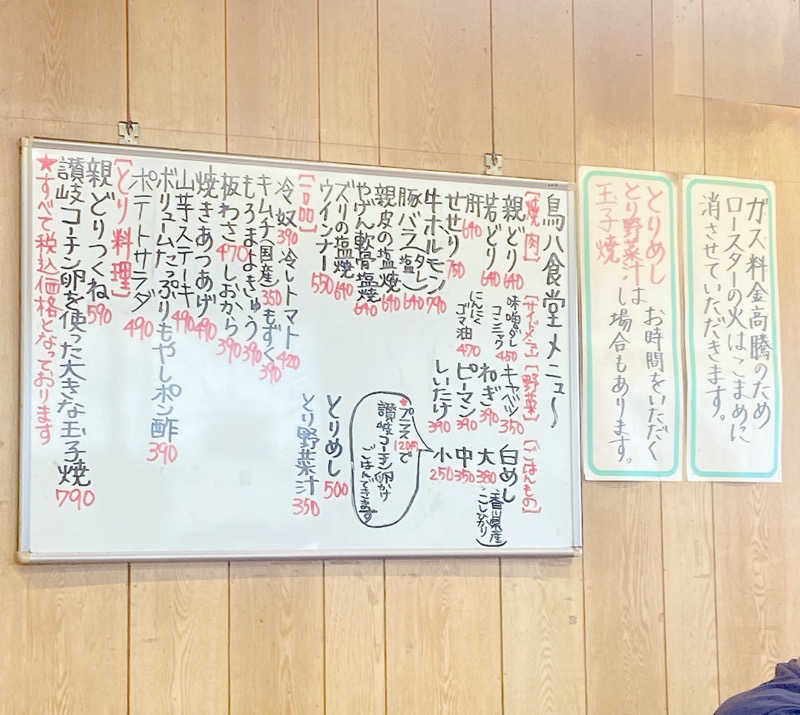 鳥八食堂メニュー
[焼肉]
親どり 640
若どり 640
肝 640
せせり 750
牛ホルモン 790
豚バラ(タレ・塩) 640
親皮の塩焼 640
やげん軟骨塩焼 640
ズリの塩焼 640
ウインナー 550
[サイドメニュー]
味噌だし
コンニャク 450
にんにく
ゴマ油 470
[野菜]
キャベツ 350
ねぎ 390
ピーマン 390
しいたけ 390
[ごはんもの]
白めし
(香川県産
こしひかり)
大 380
中 350
小 250
★プラス120円で
讃岐コーチン卵かけ
ごはんできます
とりめし 500
とり野菜汁 350
[一品]
冷奴 390
冷しトマト 420
キムチ(国産) 350
もずく 390
もろきゅう 390
板わさ 470
しおから 390
焼きあつあげ 490
山芋ステーキ 490
ボリュームたっぷりもやしポン酢 390
ポテトサラダ 490
[とり料理]
親どりつくね 590
讃岐コーチン卵を使った大きな玉子焼 790
★すべて税込価格となっております
ガス料金高騰のため
ロースターの火はこまめに
消させていただきます。
とりめし
とり野菜汁は
玉子焼
お時間をいただく
場合もあります。